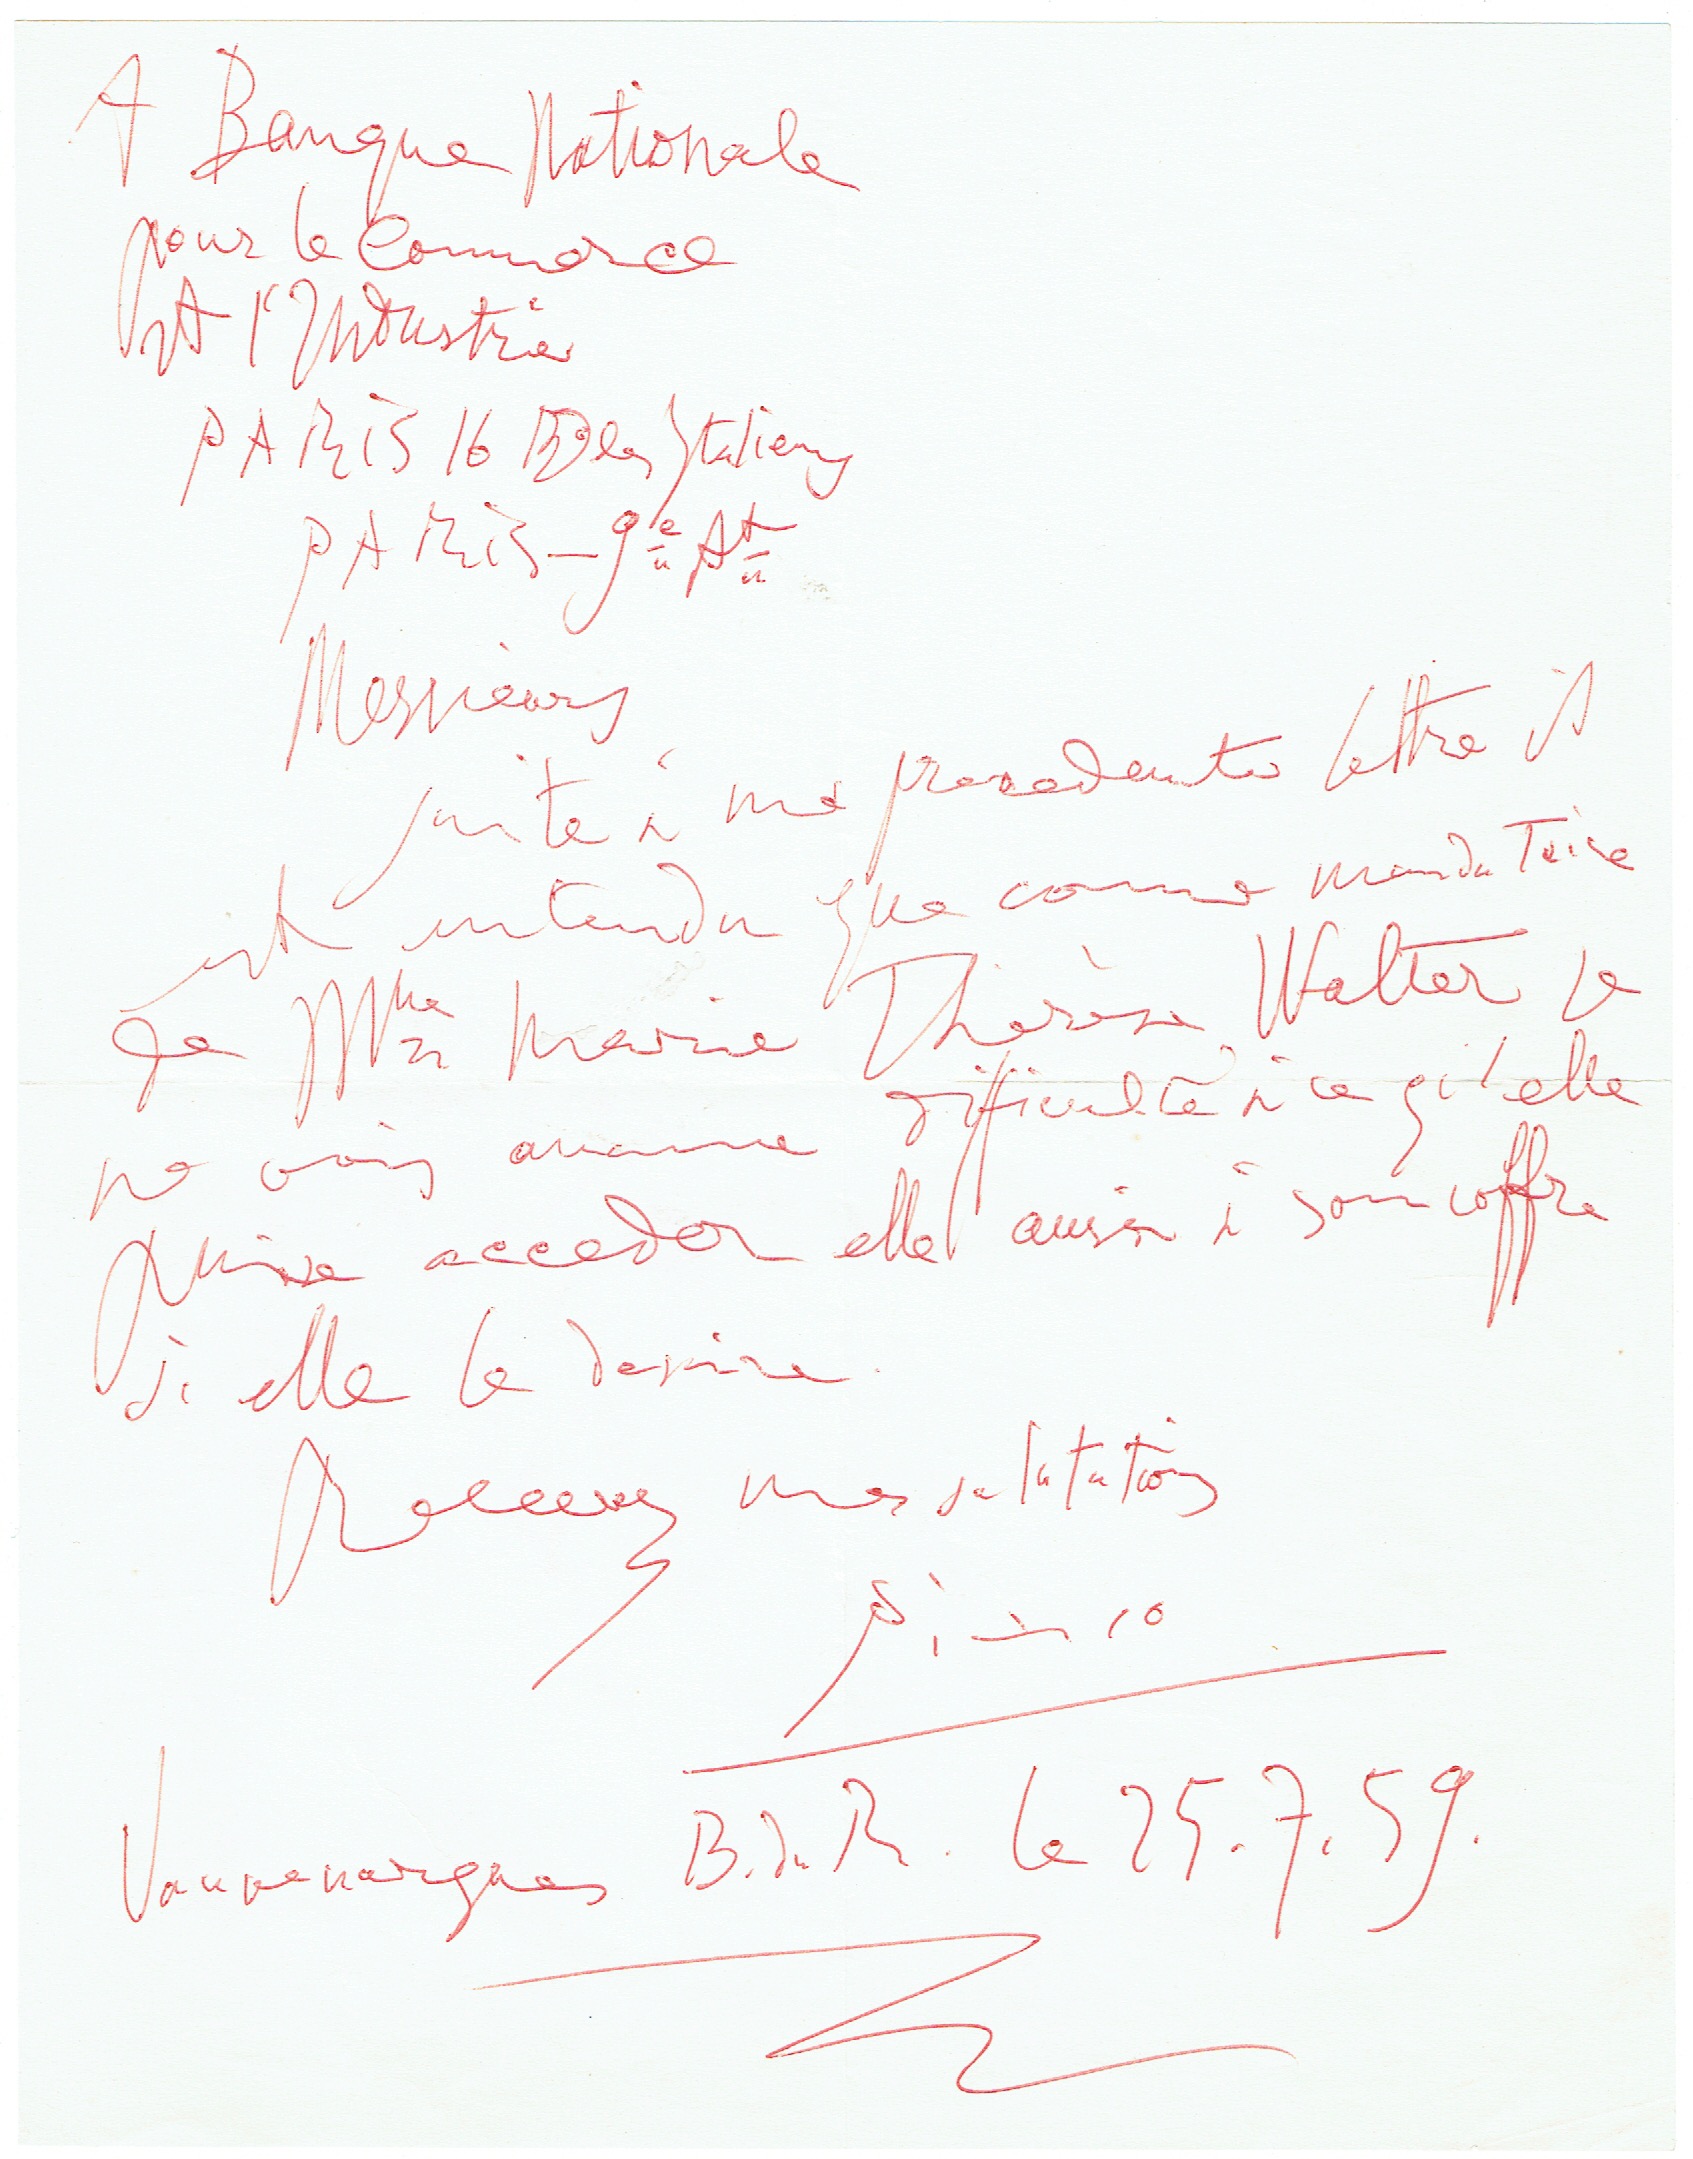 A Banque Nationale
pour le Commerce
et l'Industrie
PARIS 16 BD des Italiens
PARIS - 9e At
Messieurs
suite à ma precedente lettre il
est entendu que comme mandataire
de Mlle Marie Thérèse Walter je
ne vois aucune difficulté à ce qu'elle
puisse acceder elle aussi à son coffre
si elle le desire.
Recevez mes salutations
Picasso
Vauvenargues B. du R. le 25.7.59.